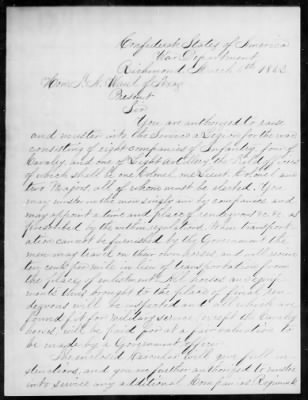 Confederate States of America
War Department
Richmond March 1862
Hon. of Texas
Present
Sir
You are authorized to raise
and muster into the service a Legion for the war
consisting of eight companies of Infantry, four of
Cavalry, and one of Light Artillery the Field officers
of which shall be one Colonel, one Lieut. Colonel and
two Majors all of whom must be elected. You
may muster in the men singly or by companies and
may appoint a time and place of rendezvous as
prescribed by the within regulations. When transport
ation cannot be furnished by the Government the
men may travel on their own horses, and will receive
ten cents per mile in lieu of transportation from
the place of enlistment. All horses and equip
ments thus brought to the place of final ren
dezvous will be inspected and which are
found fit for military service except the Cavalry
horses will be paid for at a fair valuation to
be made by a Government officer
The enclosed circular will give full in
structions, and you are further authorized to muster
into service any additional Companies Regiments